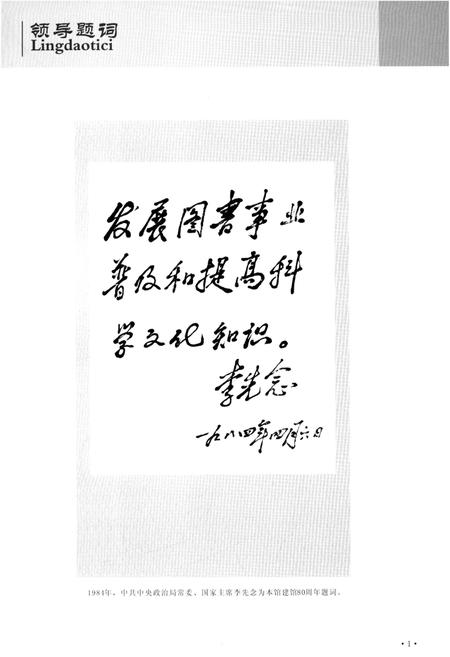 领导题词
Lingdaotici
发展图书事业
普及和提高科
学文化知识。
李先念
一九八四年四月六日
1984年，中共中央政治局常委、国家主席李先念为本馆建馆80周年题词。
·1·